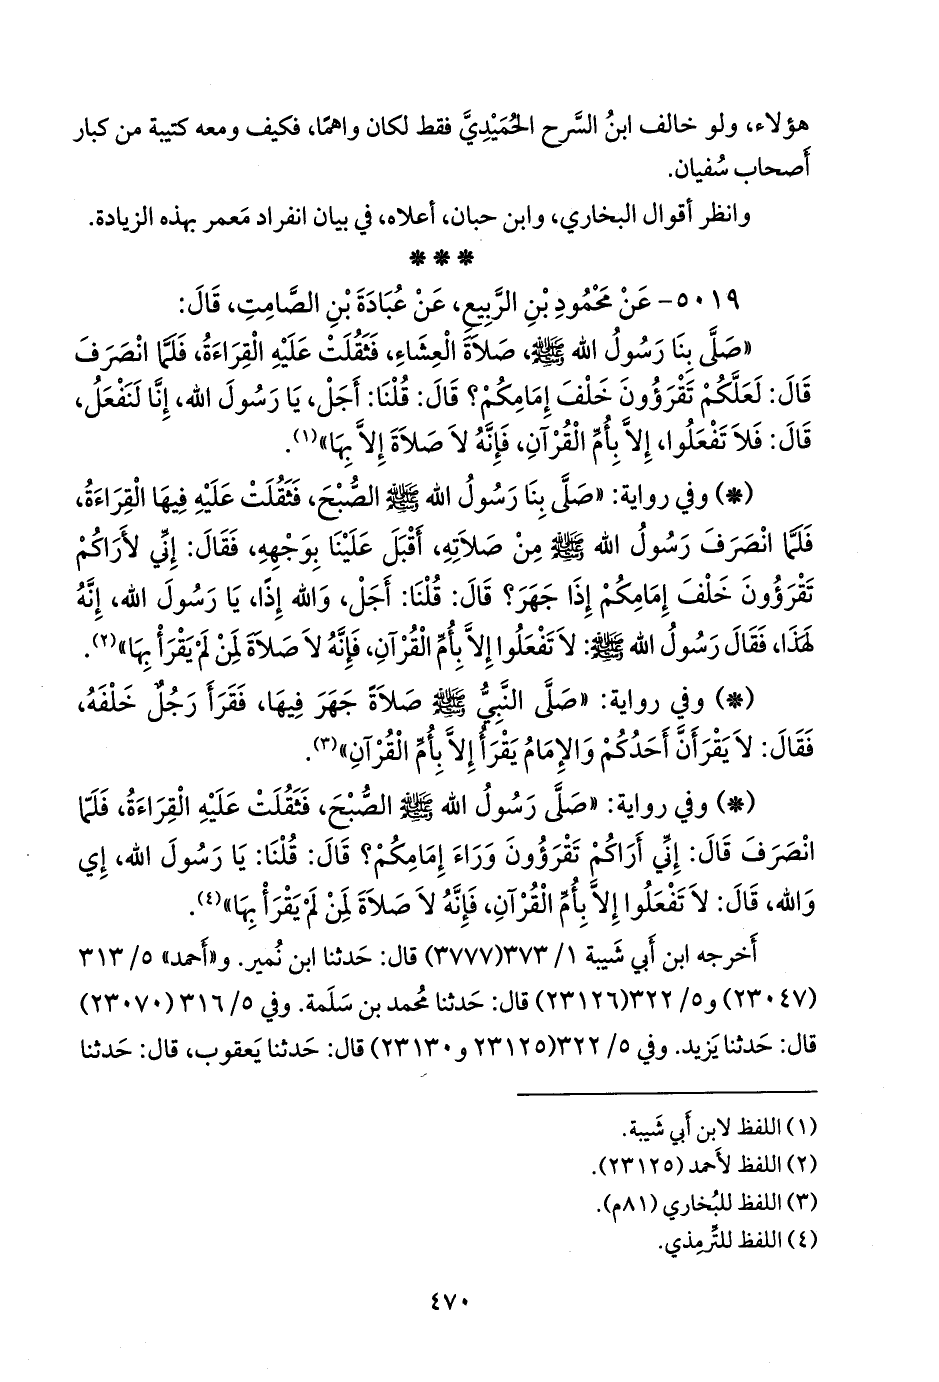 هؤلاء، ولو خالف ابنُ السَّرح الحُمَيْدِيَّ فقط لكان واهمًا، فكيف ومعه كتيبة من كبار
أَصحاب سُفيان.
وانظر أقوال البخاري، وابن حبان، أعلاه، في بيان انفراد مَعمر بهذه الزيادة.
* * *
٥٠١٩- عَنْ مَحْمُودِ بْنِ الرَّبِيعِ، عَنْ عُبَادَةَ بْنِ الصَّامِتِ، قَالَ:
«صَلَّى بِنَا رَسُولُ الله ﷺ، صَلاَةَ الْعِشَاءِ، فَثَقُلَتْ عَلَيْهِ الْقِرَاءَةُ، فَلَمَّا انْصَرَفَ
قَالَ: لَعَلَّكُمْ تَقْرَؤُونَ خَلْفَ إِمَامِكُمْ؟ قَالَ: قُلْنَا: أَجَلْ، يَا رَسُولَ الله، إِنَّا لَنَفْعَلُ،
قَالَ: فَلاَ تَفْعَلُوا، إِلاَّ بِأُمِّ الْقُرْآنِ، فَإِنَّهُ لاَ صَلاَةَ إِلاَّ بِهَا»(١).
(*) وفي رواية: «صَلَّى بِنَا رَسُولُ الله ﷺ الصُّبْحَ، فَثَقُلَتْ عَلَيْهِ فِيهَا الْقِرَاءَةُ،
فَلَمَّا انْصَرَفَ رَسُولُ الله ﷺ مِنْ صَلاَتِهِ، أَقْبَلَ عَلَيْنَا بِوَجْهِهِ، فَقَالَ: إِنِّي لأَرَاكُمْ
تَقْرَؤُونَ خَلْفَ إِمَامِكُمْ إِذَا جَهَرَ؟ قَالَ: قُلْنَا: أَجَلْ، وَالله إِذًا، يَا رَسُولَ الله، إِنَّهُ
لَهَذَا، فَقَالَ رَسُولُ الله ﷺ: لاَ تَفْعَلُوا إِلاَّ بِأُمِّ الْقُرْآنِ، فَإِنَّهُ لاَ صَلاَةَ لِمَنْ لَمْ يَقْرَأْ بِهَا»(٢).
(*) وفي رواية: «صَلَّى النَّبِيُّ ﷺ صَلاَةً جَهَرَ فِيهَا، فَقَرَأَ رَجُلٌ خَلْفَهُ،
فَقَالَ: لاَ يَقْرَأَنَّ أَحَدُكُمْ وَالإِمَامُ يَقْرَأُ إِلاَّ بِأُمِّ الْقُرْآنِ»(٣).
(*) وفي رواية: «صَلَّى رَسُولُ الله ﷺ الصُّبْحَ، فَثَقُلَتْ عَلَيْهِ الْقِرَاءَةُ، فَلَمَّا
انْصَرَفَ قَالَ: إِنِّي أَرَاكُمْ تَقْرَؤُونَ وَرَاءَ إِمَامِكُمْ؟ قَالَ: قُلْنَا: يَا رَسُولَ الله، إِي
وَالله، قَالَ: لاَ تَفْعَلُوا إِلاَّ بِأُمِّ الْقُرْآنِ، فَإِنَّهُ لاَ صَلاَةَ لِمَنْ لَمْ يَقْرَأْ بِهَا»(٤).
أَخرجه ابن أَبي شَيبة ١/ ٣٧٣(٣٧٧٧) قال: حَدثنا ابن نُمير. و«أَحمد» ٥/ ٣١٣
(٢٣٠٤٧) و٥/ ٣٢٢(٢٣١٢٦) قال: حَدثنا مُحمد بن سَلَمة. وفي ٥/ ٣١٦(٢٣٠٧٠)
قال: حَدثنا يَزيد. وفي ٥/ ٣٢٢(٢٣١٢٥ و٢٣١٣٠) قال: حَدثنا يَعقوب، قال: حَدثنا
(١) اللفظ لابن أَبي شَيبة.
(٢) اللفظ لأَحمد (٢٣١٢٥).
(٣) اللفظ للبُخاري (٨١م).
(٤) اللفظ للتِّرمِذي.
٤٧٠